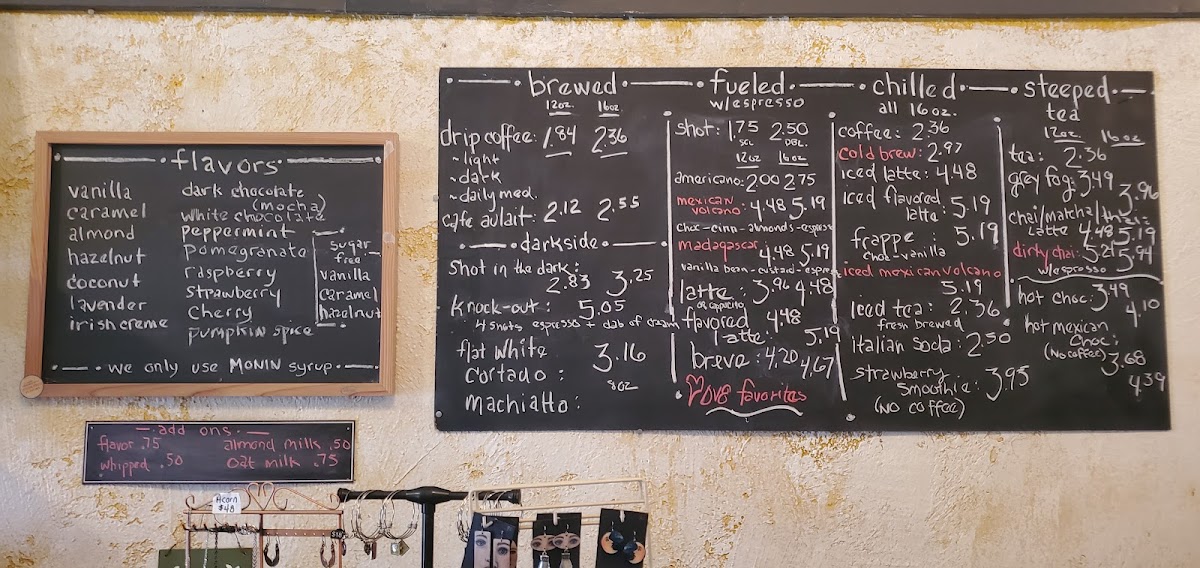 flavors
vanilla
caramel
almond
hazelnut
coconut
lavender
irish creme
dark chocolate
(mocha)
white chocolate
peppermint
pomegranate
raspberry
strawberry
cherry
pumpkin spice
sugar
free
vanilla
caramel
hazelnut
we only use MONIN syrup
add ons
flavor .75 almond milk .50
whipped .50 oat milk .75
brewed
12oz. 16oz
drip coffee: 1.84 2.36
~light
~dark
~daily med.
cafe aulait: 2.12 2.55
darkside
shot in the dark:
2.83 3.25
knock-out: 5.05
4 shots espresso + dab of cream
flat white 3.16
cortado:
8oz
machiatto:
fueled
w/espresso
shot: 1.75 2.50
SGL DBL.
12oz 16oz
americano: 2.00 2.75
mexican
volcano: 4.48 5.19
choc-cinn-almonds-espress
madagascar 4.48 5.19
vanilla bean-custard-espress
latte: 3.96 4.48
or cappucino
flavored 4.48
latte: 5.19
breve: 4.20 4.67
love favorites
chilled
all 16oz.
coffee: 2.36
cold brew: 2.97
iced latte: 4.48
iced flavored
latte: 5.19
frappe: 5.19
choc-vanilla
iced mexican volcano
5.19
Iced tea: 2.36
fresh brewed
Italian soda: 2.50
strawberry
smoothie: 3.95
(NO coffee)
steeped
tea
12oz. 16oz
tea: 2.36
grey fog: 3.49 3.96
chai/matcha/
latte 4.48 5.19
dirty chai: 5.21 5.94
w/espresso
hot choc: 3.49
4.10
hot mexican
choc:
(NO coffee) 3.68
4.39
Acorn
$48